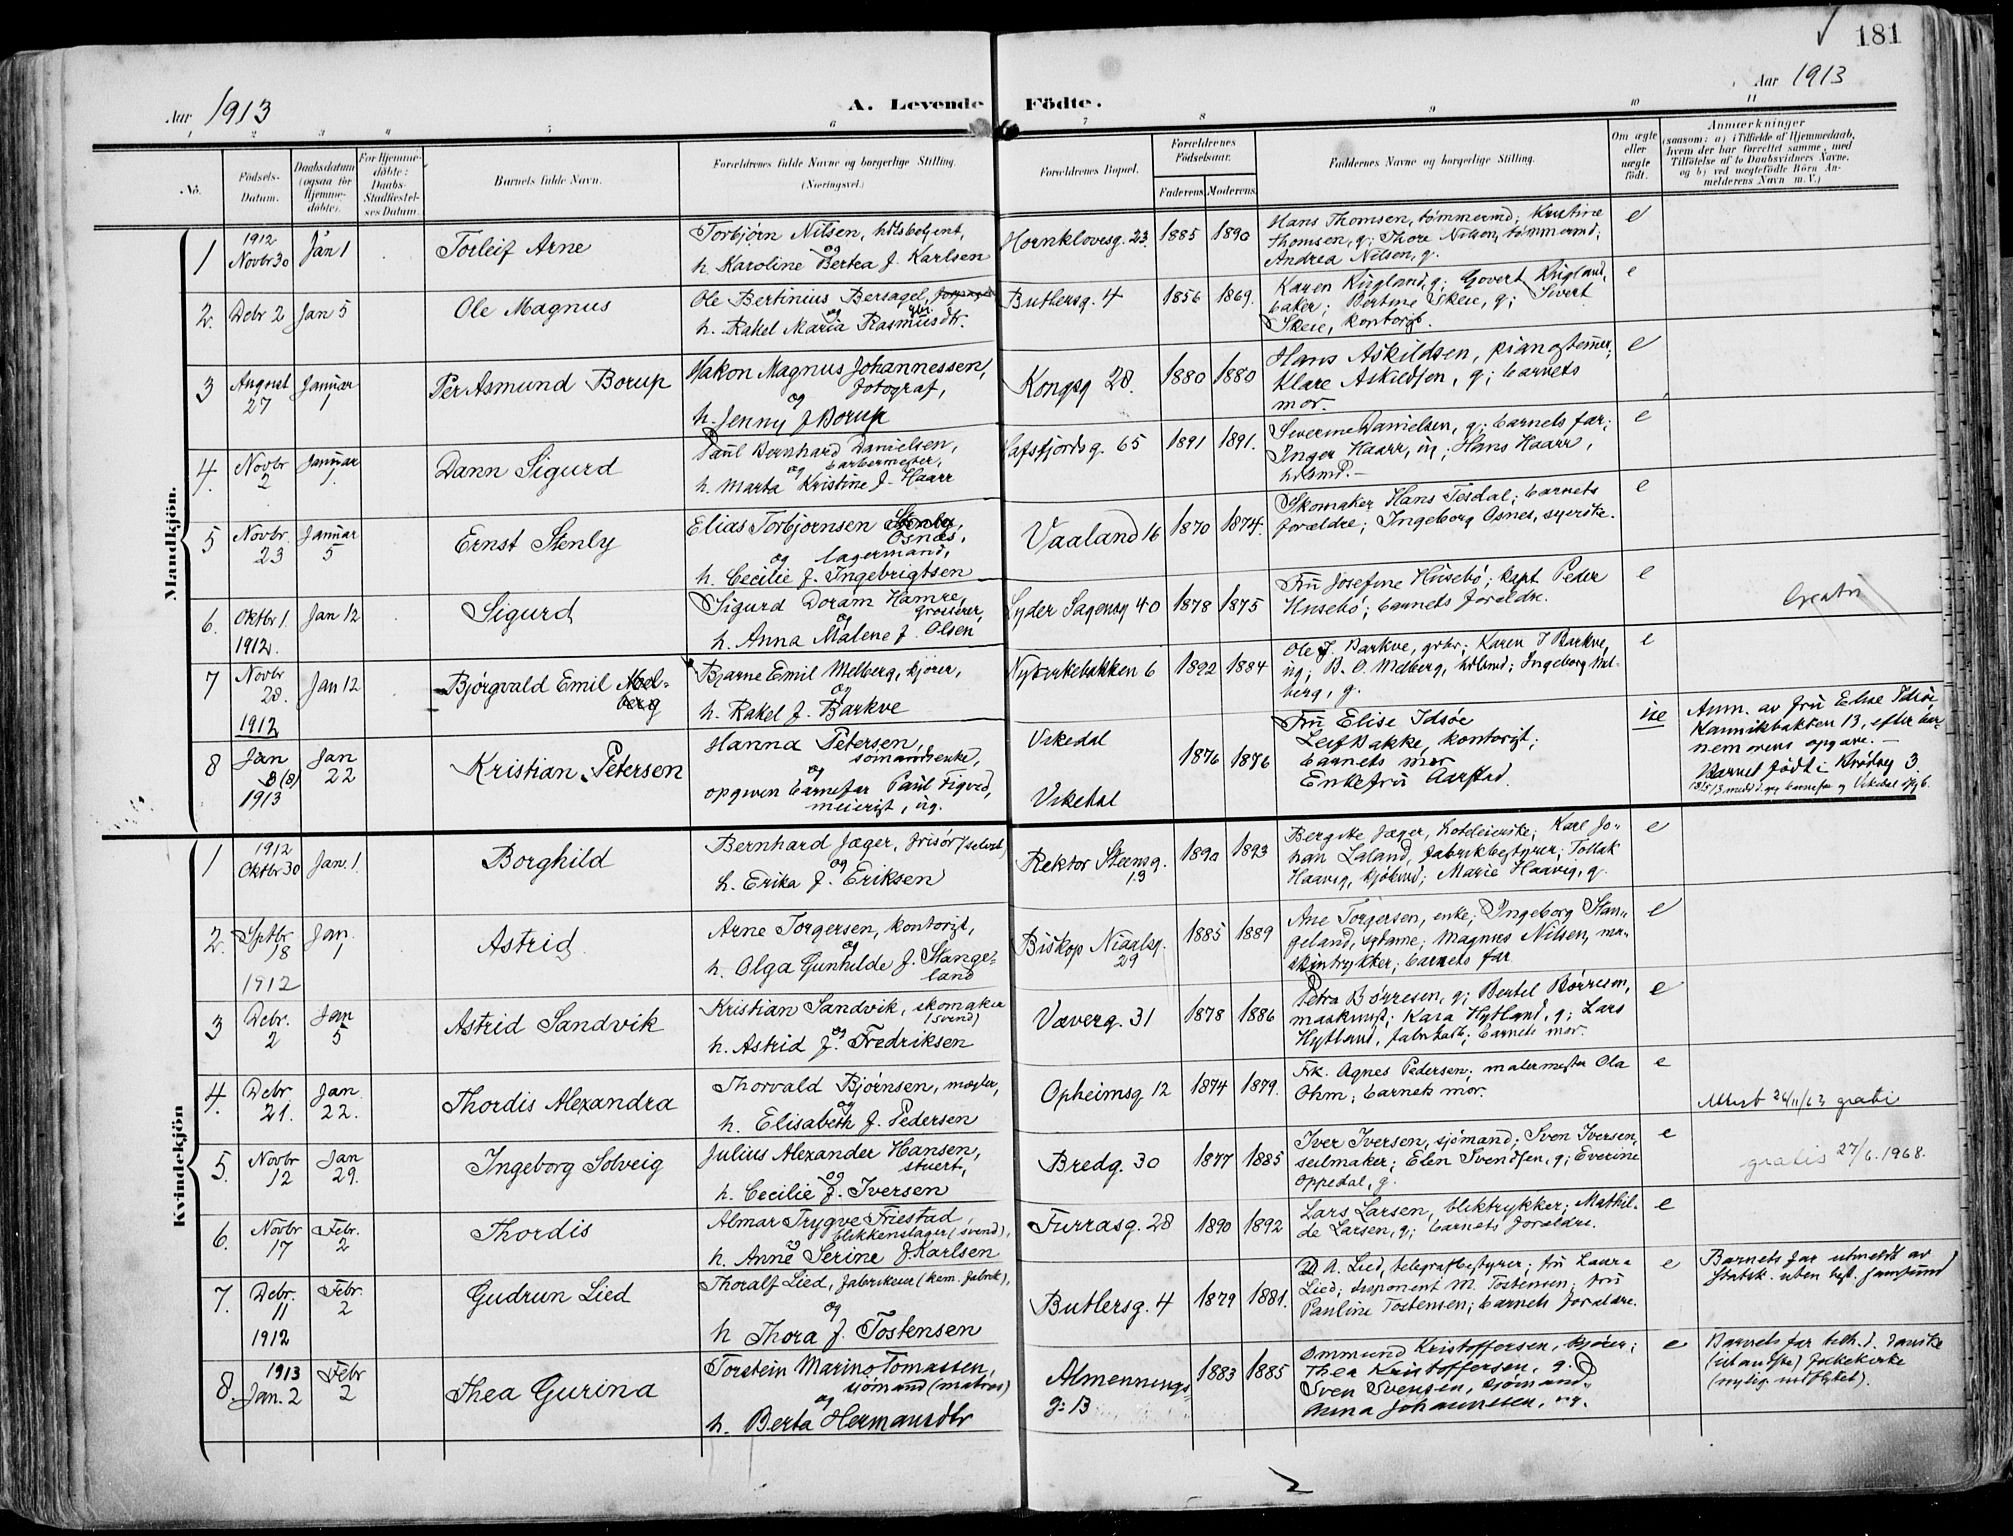 181
Aar 1913
A. Levende Födte.
Aar 1913
1 2 3 4 5 6 7 8 9 10 11
No.
Födsels-
Datum.
Daabsdatum
(ogsaa for
Hjemme-
döbte).
For Hjemme-
döbte:
Daabs-
Stadfestel-
ses Datum.
Barnets fulde Navn.
Forældrenes fulde Navne og borgerlige Stilling.
(Næringsvei.)
Forældrenes Bopæl.
Forældrenes
Födselsaar.
Faderens Moderens
Faddernes Navne og borgerlige Stilling.
Om ægte
eller
uægte
födt.
Anmærkninger
(saasom: a) i Tilfælde af Hjemmedaab,
hvem der har forrettet samme, med
Tilföielse af to Daabsvidners Navne,
og b) ved uægtefödte Börn An-
melderens Navn m. V.)
Mandkjön.
1
1912
Novbr 30
Jan 1
Torleif Arne
Torbjørn Nilsen,
og
h. Karoline Bertea f. Karlsen
Hornklovesg. 23.
1885
1890
Hans Thomsen, tømmermd; Kristine
Thomsen, g; Thore Nilsen, tømmermd;
Andrea Nilsen, g.
e
2.
Debr 2
Jan 5
Ole Magnus
Ole Bertinius Bersagel,
og
h. Rakel Maria Rasmusdtr.
Butlersg. 4
1856
1869.
Karen Kigland, g; Govert Kigland,
baker; Bertine Skeie, g; Sivert
Skeie, kontorgt.
e
3
August
27
Januar
1
Per Asmund Borup
Hakon Magnus Johannessen,
fotograf,
og
h. Jenny f Borup
Kongsg 28.
1880
1880
Hans Askildsen, pianostemmer;
Klare Askildsen, g; barnets
mor.
e
4.
Novbr
2
Januar
1.
Dann Sigurd
Paul Bernhard Danielsen,
barbermester,
og
h. Marta Kristine f. Haarr
Hafsfjordsg. 65
1891
1891.
Severine Danielsen, g; barnets far;
Inger Haarr, ug; Hans Haarr,
e
5
Novbr.
23
Januar
5
Ernst Stenly
Elias Torbjørnsen Stenly,
Osnes,
lagermand,
og
h. Cecilie f. Ingebrigtsen
Vaaland 16
1870
1874.
Skomaker Hans Tesdal; barnets
forældre; Ingeborg Osnes, syerske.
e
6.
Oktbr 1
1912.
Jan 12
Sigurd
Sigurd Doram Hamre,
grosserer,
og
h. Anna Malene f. Olsen
Lyder Sagensg 40
1878
1875
Fru Josefine Husebö; kapt. Peder
Husebö; barnets foraldre.
e
Gratis
7
Novbr
28.
1912
Jan 12
Bjørgvald Emil Mel-
berg
Bjarne Emil Melberg, kjører,
og
h. Rakel f. Barkve
Nykirkebakken 6
1892
1884
Ole J. Barkve, grbr; Karen J Barkve,
ug; B. O. Melberg, ; Ingeborg Mel-
berg, g.
e
8
Jan
8 (8)
1913
Jan
22
Kristian Petersen
Hanna Petersen,
sömandsenke,
og
opgiven barnefar Paul Figved,
meierist, ug.
Vikedal
Vikedal
1876
1876
Fru Elise Idsöe
Leif Bakke, kontorist;
barnets mor
Enkefru Aarstad.
ue
Anm. av fru Elise Idsöe
Kannikbakken 13, efter bar-
nemorens opgave.
Barnet födt i 3.
Kvindekjön
1
1912
Oktbr 30
Jan. 1
Borghild
Bernhard Jæger, frisör (selvst)
og
h. Erika f. Eriksen
Rektor Steensg.
13
1890
1893
Bergite Jæger, hoteleierske; Karl Jo-
han Laland, fabrikbestyrer; Tollak
Haavig, ; Marie Haavig, g.
e
2.
Sptbr
18
1912
Jan.
1
Astrid
Arne Torgersen, kontorist,
og
h. Olga Gunhilde f. Stange-
land
Biskop Niaalsg.
29
1885
1889
Ane Torgersen, enke; Ingeborg Stan-
geland, sydame; Magnus Nilsen, ma-
skintrykker; barnets far
e
3
Debr.
2
Jan
5
Astrid Sandvik
Kristian Sandvik, skomaker
(svend)
og
h. Astrid f. Fredriksen
Væverg. 31
1878
1886
Petra Börresen, g; Bertel Börresen,
maskinist; Kara Hytland, g; Lars
Hytland, ; barnets mor.
e
4.
Debr
21.
Jan
22.
Thordis Alexandra
Thorvald Bjørnsen, mægler,
og
h. Elisabeth f. Pedersen
Opheimsg 12
1874
1879.
Frk. Agnes Pedersen; malermester Ola
Ohm; barnets mor.
e
Attest 26/11/63 gratis
5.
Novbr
12
Jan
29.
Ingeborg Solveig
Julius Alexander Hansen,
stuert,
og
h. Cecilie f. Iversen
Bredg. 30
1877
1885
Iver Iversen, sjömand; Sven Iversen,
seilmaker; Elen Svendsen, g; Everine
Oppedal, g.
e
gratis 27/6.1968.
6.
Novbr
17
Febr.
2
Thordis
Almar Trygve Friestad,
blikkenslager (svend),
og
h. Anne Serine f Karlsen
Furrasg. 28
1890
1892
Lars Larsen, bliktrykker; Mathil-
de Larsen, g; barnets foraldre.
e
7.
Debr.
11
1912
Febr.
2
Gudrun Lied
Thoralf Lied, fabrikeier (kem. fabrik),
og
h Thora f. Tostensen
Butlersg. 4
1879
1881.
D. A. Lied, telegrafbestyrer; fru Laura
Lied; disponent M. Tostensen; fru
Pauline Tostensen; barnets foraldre.
e
Barnets far utmeldt av
statsk. uten best. samfund
8
1913
Jan. 2
Febr
2
Thea Gurina
Torstein Marino Tomassen,
sjömand (matros)
og
h. Berta Hermansdtr
Almennings-
g: 13
1883
1885
Ommund Kristoffersen, kjører;
Thea Kristoffersen, g.
Sven Svensen, sjömand
Anna Johannesen, ug.
e
Barnets far tilh. d. danske
folkekirke
(nylig indflyttet).
2